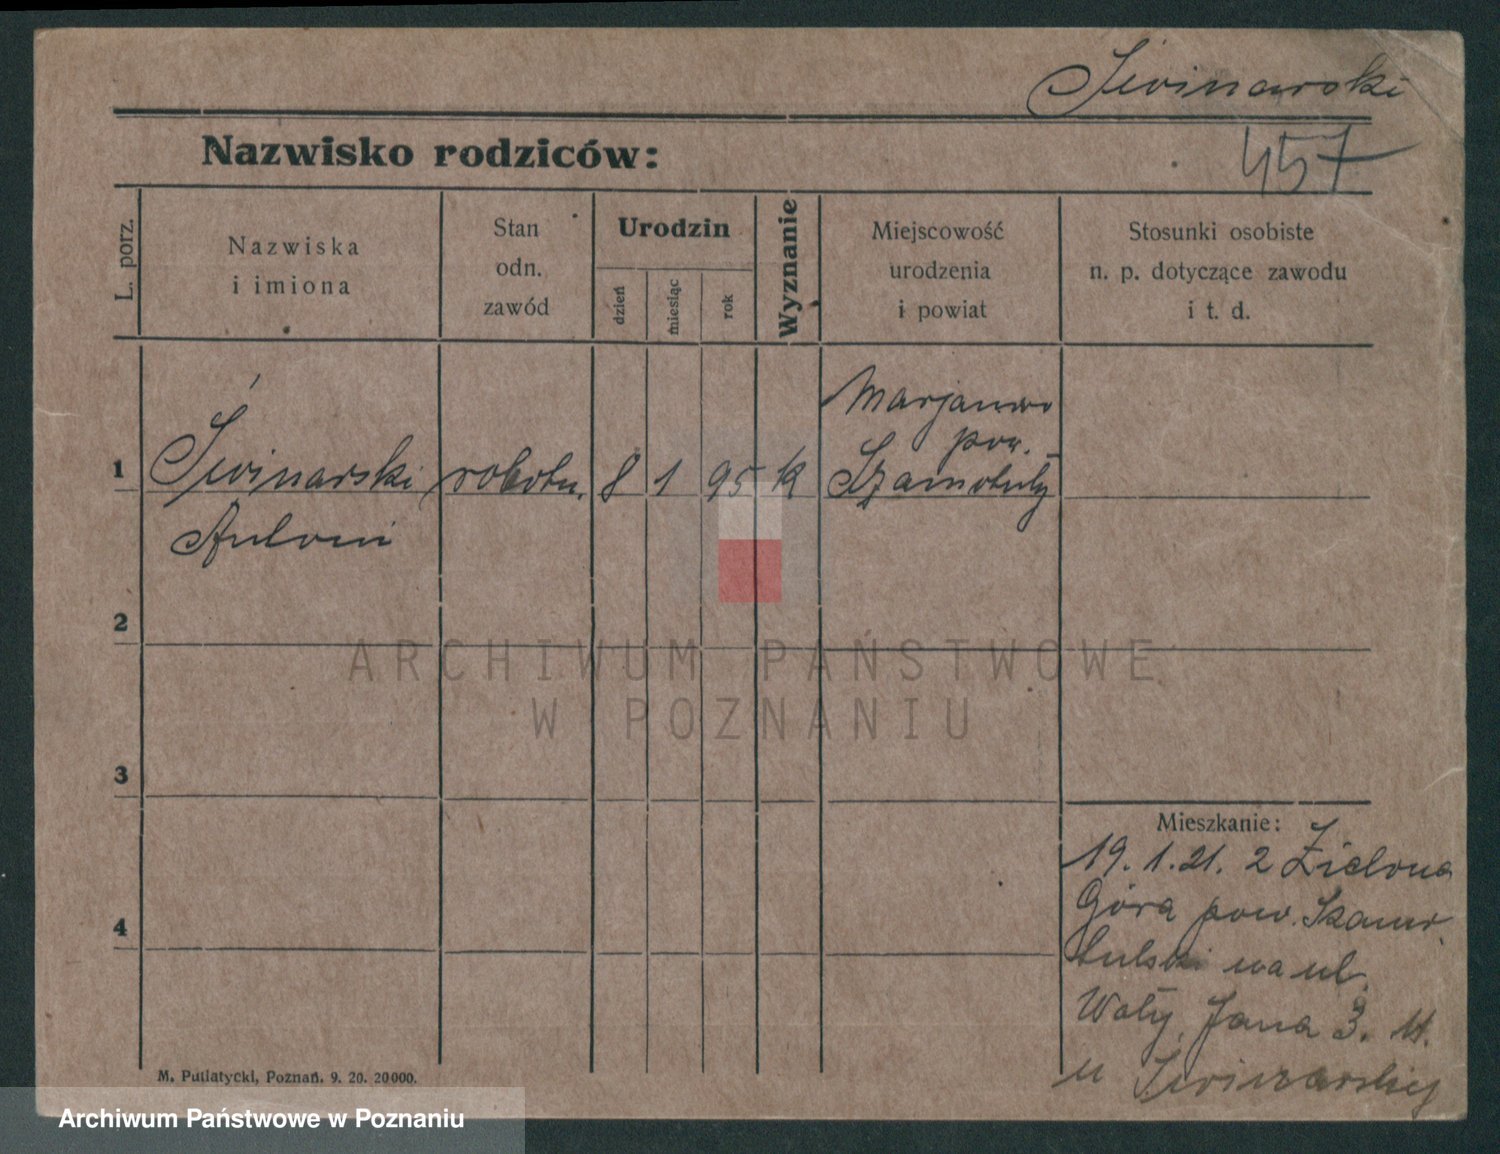 Siwinarski
457
Nazwisko rodziców:
L. porz.
Nazwiska
i imiona
Stan
odn.
zawód
Urodzin
dzień
miesiąc
rok
Wyznanie
Miejscowość
urodzenia
i powiat
Stosunki osobiste
n. p. dotyczące zawodu
i t. d.
1
Siwinarski
Antoni
robotn.
8
1
95
K
Marjanowo
pow.
Szamotuły
2
3
4
Mieszkanie:
19. 1. 21. z Zielona
Góra pow. Szamo
tulski na ul.
Wały Jana 3. 11.
u Siwinarskiej
M. Putiatycki, Poznań. 9. 20. 20000.
ARCHIWUM PAŃSTWOWE
W POZNANIU
Archiwum Państwowe w Poznaniu